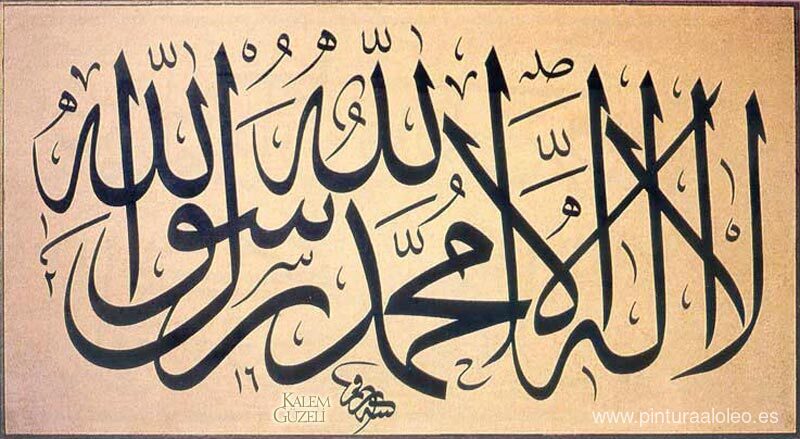 لا اله الا الله محمد رسول الله
١٢
١٦
KALEM
GÜZELİ
www.pinturaaloleo.es